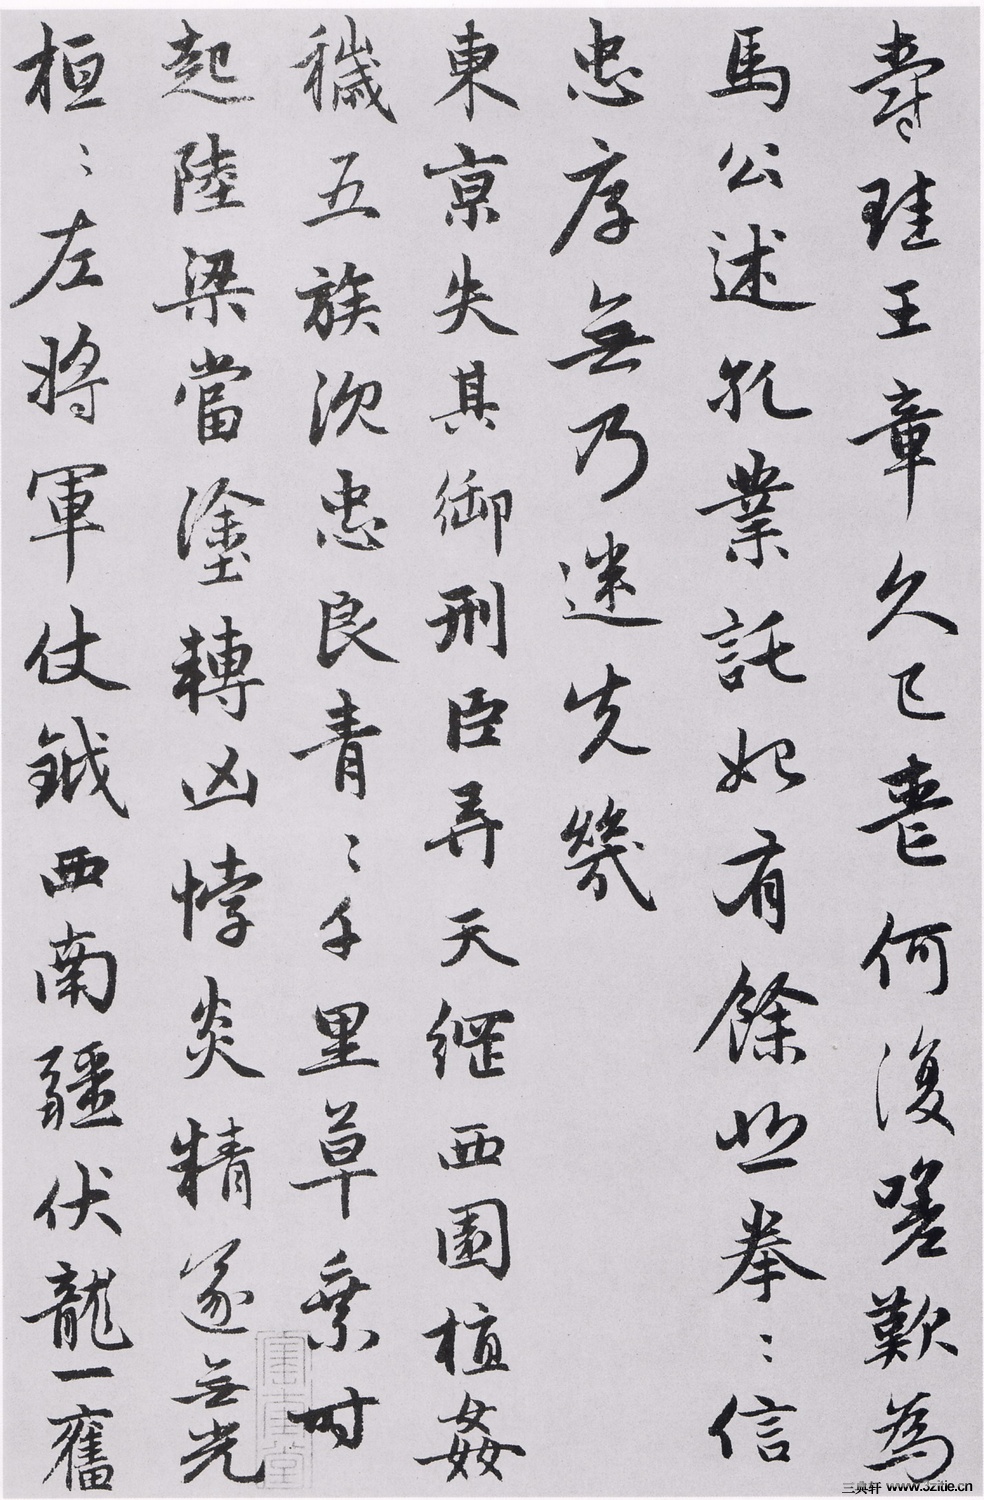 爵珪王章久已喪何復嗟歎為
馬公述孔業託始有餘悲拳〻信
忠厚無乃迷先幾
東京失其御刑臣弄天綱西園植姦
穢五族沉忠良青〻千里草乘時
起陸梁當塗轉凶悖炎精遂無光
桓〻左將軍仗鉞西南疆伏龍一奮
三典轩 www.3zitie.cn